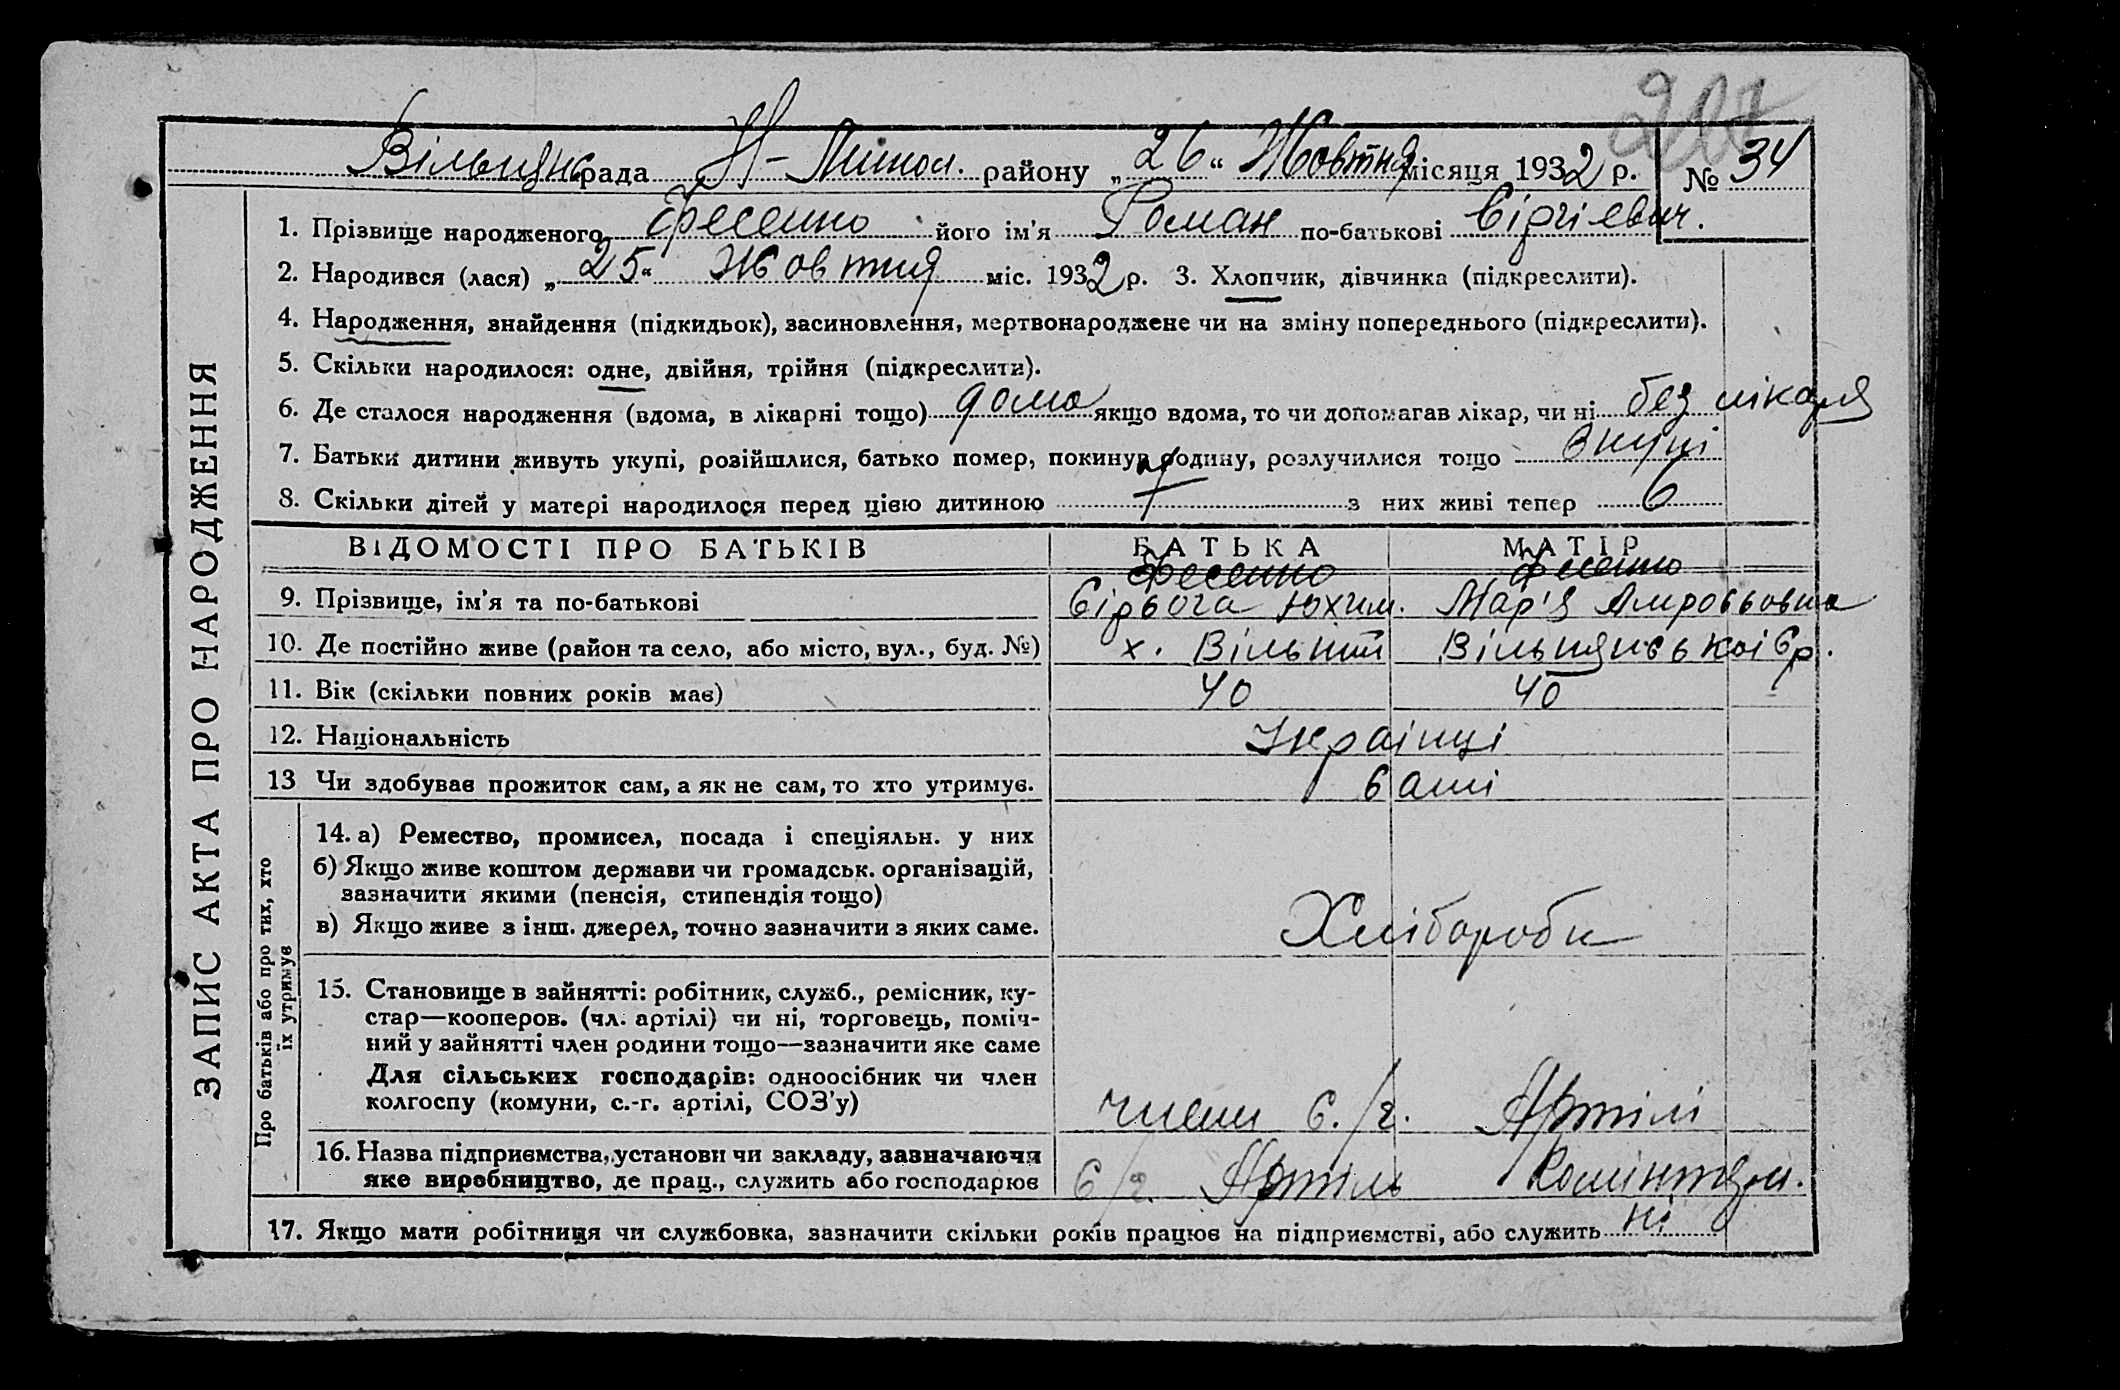 207
Вільнянс. рада Н-Микол. району „26“ Жовтня місяця 1932 р. № 34
1. Прізвище народженого Фесенко його ім'я Роман по-батькові Сіргієвич.
2. Народився (лася) „25“ Жовтня міс. 1932 р. 3. Хлопчик, дівчинка (підкреслити).
4. Народження, знайдення (підкидьок), засиновлення, мертвонароджене чи на зміну попереднього (підкреслити).
5. Скільки народилося: одне, двійня, трійня (підкреслити).
6. Де сталося народження (вдома, в лікарні тощо) дома якщо вдома, то чи допомагав лікар, чи ні без лікаря
7. Батьки дитини живуть укупі, розійшлися, батько помер, покинув родину, розлучилися тощо вкупі
8. Скільки дітей у матері народилося перед цією дитиною 7 з них живі тепер 6
ВІДОМОСТІ ПРО БАТЬКІВ БАТЬКА МАТІР
Фесенко Фесенко
9. Прізвище, ім'я та по-батькові Юхим. Мар'я
10. Де постійно живе (район та село, або місто, вул., буд. №) х. Вільний Вільнянської с/р.
11. Вік (скільки повних років має) 40 40
12. Національність Українці
13 Чи здобуває прожиток сам, а як не сам, то хто утримує. самі
14. а) Ремество, промисел, посада і спеціяльн. у них
б) Якщо живе коштом держави чи громадськ. організацій,
зазначити якими (пенсія, стипендія тощо)
в) Якщо живе з інш. джерел, точно зазначити з яких саме. Хлібороби
15. Становище в зайнятті: робітник, служб., ремісник, ку-
стар—кооперов. (чл. артілі) чи ні, торговець, поміч-
ний у зайнятті член родини тощо—зазначити яке саме
Для сільських господарів: одноосібник чи член
колгоспу (комуни, с.-г. артілі, СОЗ'у) члени с./г. Артілі
16. Назва підприємства, установи чи закладу, зазначаючи
яке виробництво, де прац., служить або господарює с/г. Артіль Комінтерн.
17. Якщо мати робітниця чи службовка, зазначити скільки років працює на підприємстві, або служить ні
ЗАПИС АКТА ПРО НАРОДЖЕННЯ
Про батьків або про тих, хто
їх утримує